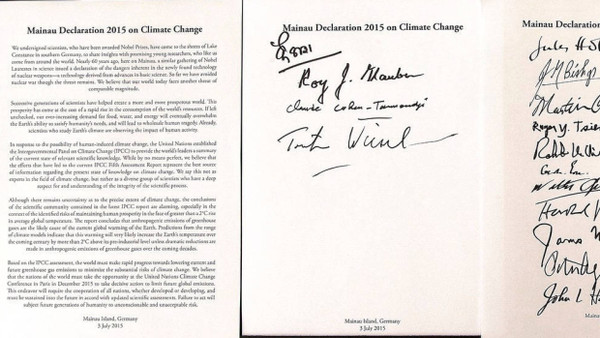 Mainau Declaration 2015 on Climate Change
We undersigned scientists, who have been awarded Nobel Prizes, have come to the shores of Lake
Constance in southern Germany, to share insights with promising young researchers, who like us
come from around the world. Nearly 60 years ago, here on Mainau, a similar gathering of Nobel
Laureates in science issued a declaration of the dangers inherent in the newly found technology
of nuclear weapons—a technology derived from advances in basic science. So far we have avoided
nuclear war though the threat remains. We believe that our world today faces another threat of
comparable magnitude.
Successive generations of scientists have helped create a more and more prosperous world. This
prosperity has come at the cost of a rapid rise in the consumption of the world's resources. If left
unchecked, our ever-increasing demand for food, water, and energy will eventually overwhelm
the Earth's ability to satisfy humanity's needs, and will lead to wholesale human tragedy. Already,
scientists who study Earth's climate are observing the impact of human activity.
In response to the possibility of human-induced climate change, the United Nations established
the Intergovernmental Panel on Climate Change (IPCC) to provide the world's leaders a summary
of the current state of relevant scientific knowledge. While by no means perfect, we believe that
the efforts that have led to the current IPCC Fifth Assessment Report represent the best source
of information regarding the present state of knowledge on climate change. We say this not as
experts in the field of climate change, but rather as a diverse group of scientists who have a deep
respect for and understanding of the integrity of the scientific process.
Although there remains uncertainty as to the precise extent of climate change, the conclusions
of the scientific community contained in the latest IPCC report are alarming, especially in the
context of the identified risks of maintaining human prosperity in the face of greater than a 2°C rise
in average global temperature. The report concludes that anthropogenic emissions of greenhouse
gases are the likely cause of the current global warming of the Earth. Predictions from the range
of climate models indicate that this warming will very likely increase the Earth's temperature over
the coming century by more than 2°C above its pre-industrial level unless dramatic reductions are
made in anthropogenic emissions of greenhouse gases over the coming decades.
Based on the IPCC assessment, the world must make rapid progress towards lowering current and
future greenhouse gas emissions to minimize the substantial risks of climate change. We believe
that the nations of the world must take the opportunity at the United Nations Climate Change
Conference in Paris in December 2015 to take decisive action to limit future global emissions.
This endeavor will require the cooperation of all nations, whether developed or developing, and
must be sustained into the future in accord with updated scientific assessments. Failure to act will
subject future generations of humanity to unconscionable and unacceptable risk.
Mainau Island, Germany
3 July 2015
Mainau Declaration 2015 on Climate Change
Roy J. Glauber
Claude Cohen-Tannoudji
Mainau Island, Germany
3 July 2015
Mainau Declaration 20
J M Bishop
Martin
Roger Y. Tsien
Harold
James
John L
Mainau